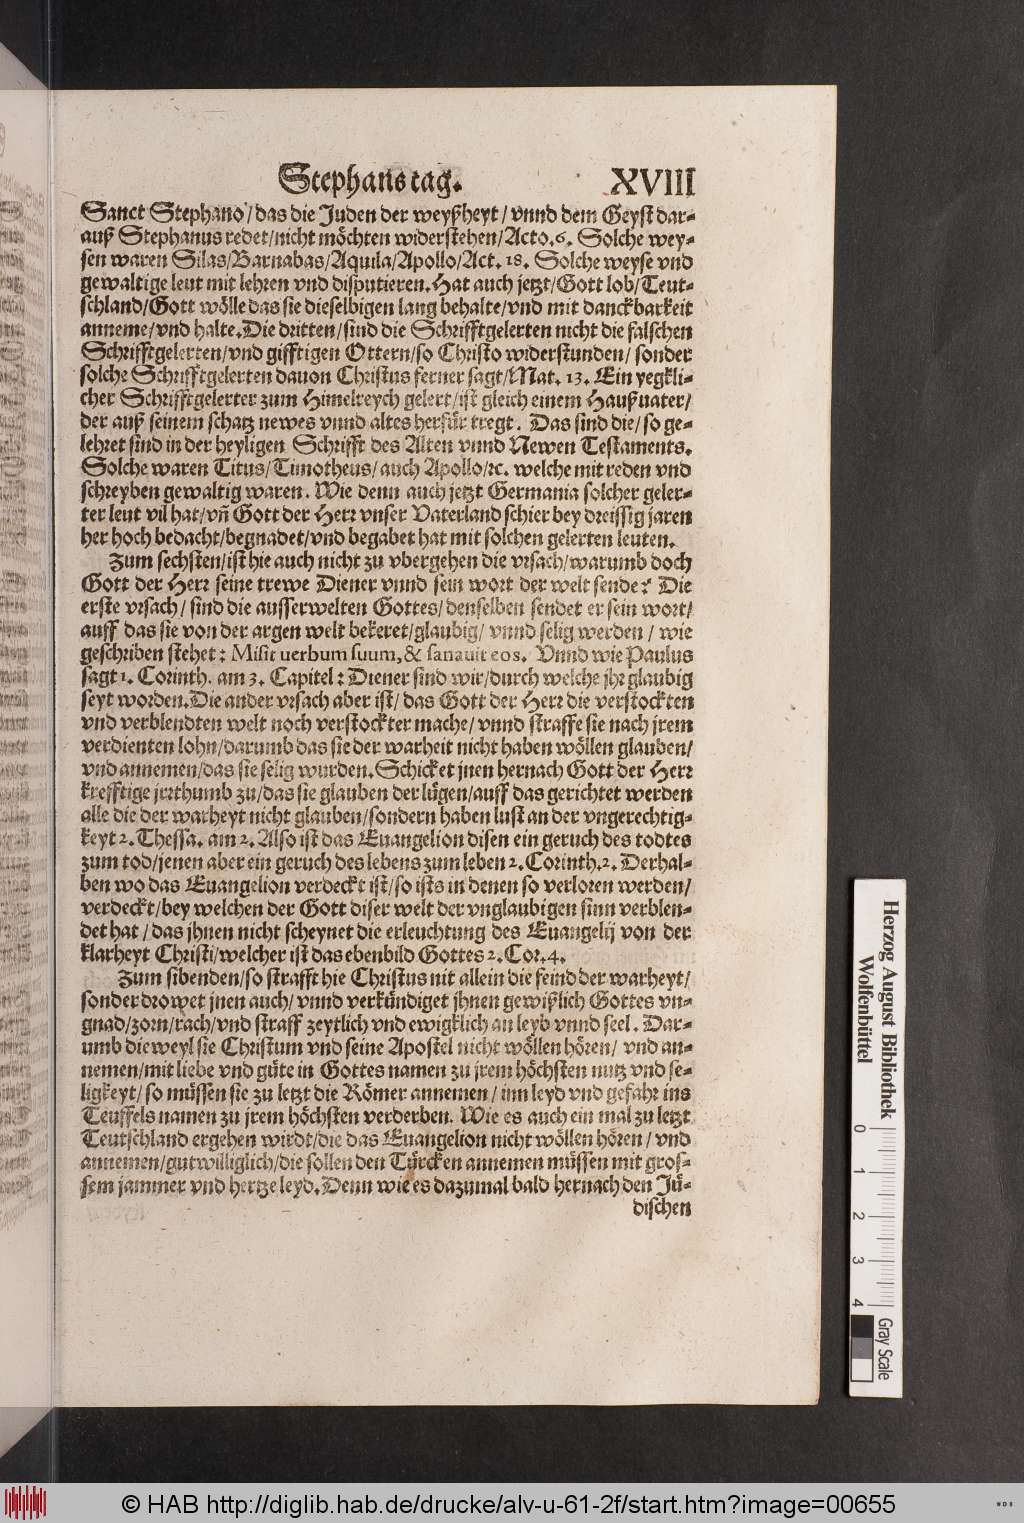 Stephans tag. XVIII
Sanct Stephano/das die Juden der weyßheyt/vnnd dem Geyst dar-
auß Stephanus redet/nicht möchten widerstehen/Acto.6. Solche wey-
sen waren Silas/Barnabas/Aquila/Apollo/Act.18. Solche weyse vnd
gewaltige leut mit lehren vnd disputieren.Hat auch jetzt/Gott lob/Teut-
schland/Gott wölle das sie dieselbigen lang behalte/vnd mit danckbarkeit
anneme/vnd halte.Die dritten/sind die Schrifftgelerten nicht die falschen
Schrifftgelerten/vnd gifftigen Ottern/so Christo widerstunden/sonder
solche Schrifftgelerten dauon Christus ferner sagt/Mat. 13. Ein yegkli-
cher Schrifftgelerter zum Himelreych gelert/ist gleich einem Haußuater/
der auß seinem schatz newes vnnd altes herfür tregt. Das sind die/so ge-
lehret sind in der heyligen Schrifft des Alten vnnd Newen Testaments.
Solche waren Titus/Timotheus/auch Apollo/ꝛc. welche mit reden vnd
schreyben gewaltig waren. Wie denn auch jetzt Germania solcher geler-
ter leut vil hat/vñ Gott der Herr vnser Vaterland schier bey dreissig jaren
her hoch bedacht/begnadet/vnd begabet hat mit solchen gelerten leuten.
Zum sechsten/ist hie auch nicht zu vbergehen die vrsach/warumb doch
Gott der Herr seine trewe Diener vnnd sein wort der welt sende? Die
erste vrsach/sind die ausserwelten Gottes/denselben sendet er sein wort/
auff das sie von der argen welt bekeret/glaubig/vnnd selig werden/wie
geschriben stehet: Misit uerbum suum,& sanauit eos. Vnnd wie Paulus
sagt 1. Corinth. am 3. Capitel: Diener sind wir/durch welche jhr glaubig
seyt worden.Die ander vrsach aber ist/das Gott der Herr die verstockten
vnd verblendten welt noch verstockter mache/vnnd straffe sie nach jrem
verdienten lohn/darumb das sie der warheit nicht haben wöllen glauben/
vnd annemen/das sie selig wurden.Schicket jnen hernach Gott der Herr
krefftige jrrthumb zu/das sie glauben der lügen/auff das gerichtet werden
alle die der warheyt nicht glauben/sondern haben lust an der vngerechtig-
keyt 2. Thessa. am 2. Also ist das Euangelion disen ein geruch des todtes
zum tod/jenen aber ein geruch des lebens zum leben 2. Corinth.2. Derhal-
ben wo das Euangelion verdeckt ist/so ists in denen so verloren werden/
verdeckt/bey welchen der Gott diser welt der vnglaubigen sinn verblen-
det hat/das jhnen nicht scheynet die erleuchtung des Euangelij von der
klarheyt Christi/welcher ist das ebenbild Gottes 2. Cor.4.
Zum sibenden/so strafft hie Christus nit allein die feind der warheyt/
sonder drowet jnen auch/vnnd verkündiget jhnen gewißlich Gottes vn-
gnad/zorn/rach/vnd straff zeytlich vnd ewigklich an leyb vnnd seel. Dar-
umb dieweyl sie Christum vnd seine Apostel nicht wöllen hören/vnd an-
nemen/mit liebe vnd güte in Gottes namen zu jrem höchsten nutz vnd se-
ligkeyt/so müssen sie zu letzt die Römer annemen/inn leyd vnd gefahr ins
Teuffels namen zu jrem höchsten verderben. Wie es auch ein mal zu letzt
Teutschland ergehen wirdt/die das Euangelion nicht wöllen hören/vnd
annemen/gutwilliglich/die sollen den Türcken annemen müssen mit gros-
sem jammer vnd hertzeleyd.Denn wie es dazumal bald hernach den Jü-
dischen
Herzog August Bibliothek
Wolfenbüttel
0 1 2 3 4
Gray Scale
© HAB http://diglib.hab.de/drucke/alv-u-61-2f/start.htm?image=00655